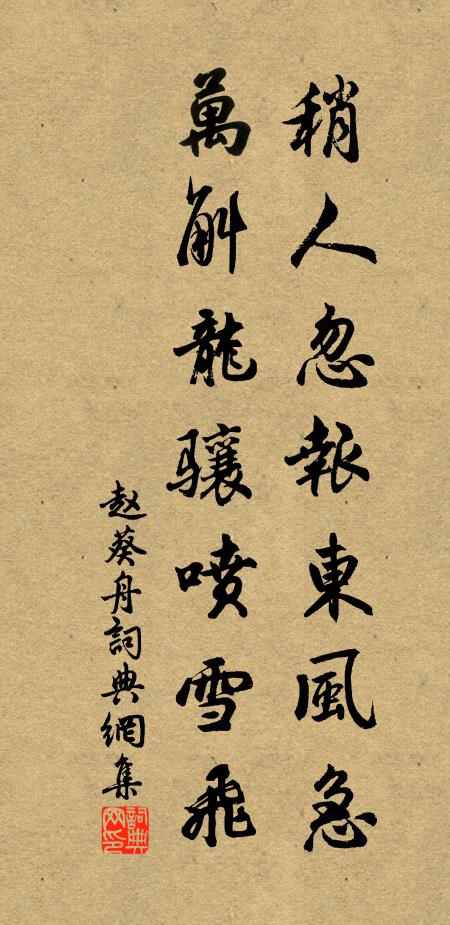 稍人忽報東風急
萬斛龍驤噴雪飛
赵葵舟詞典網集
詞典網印